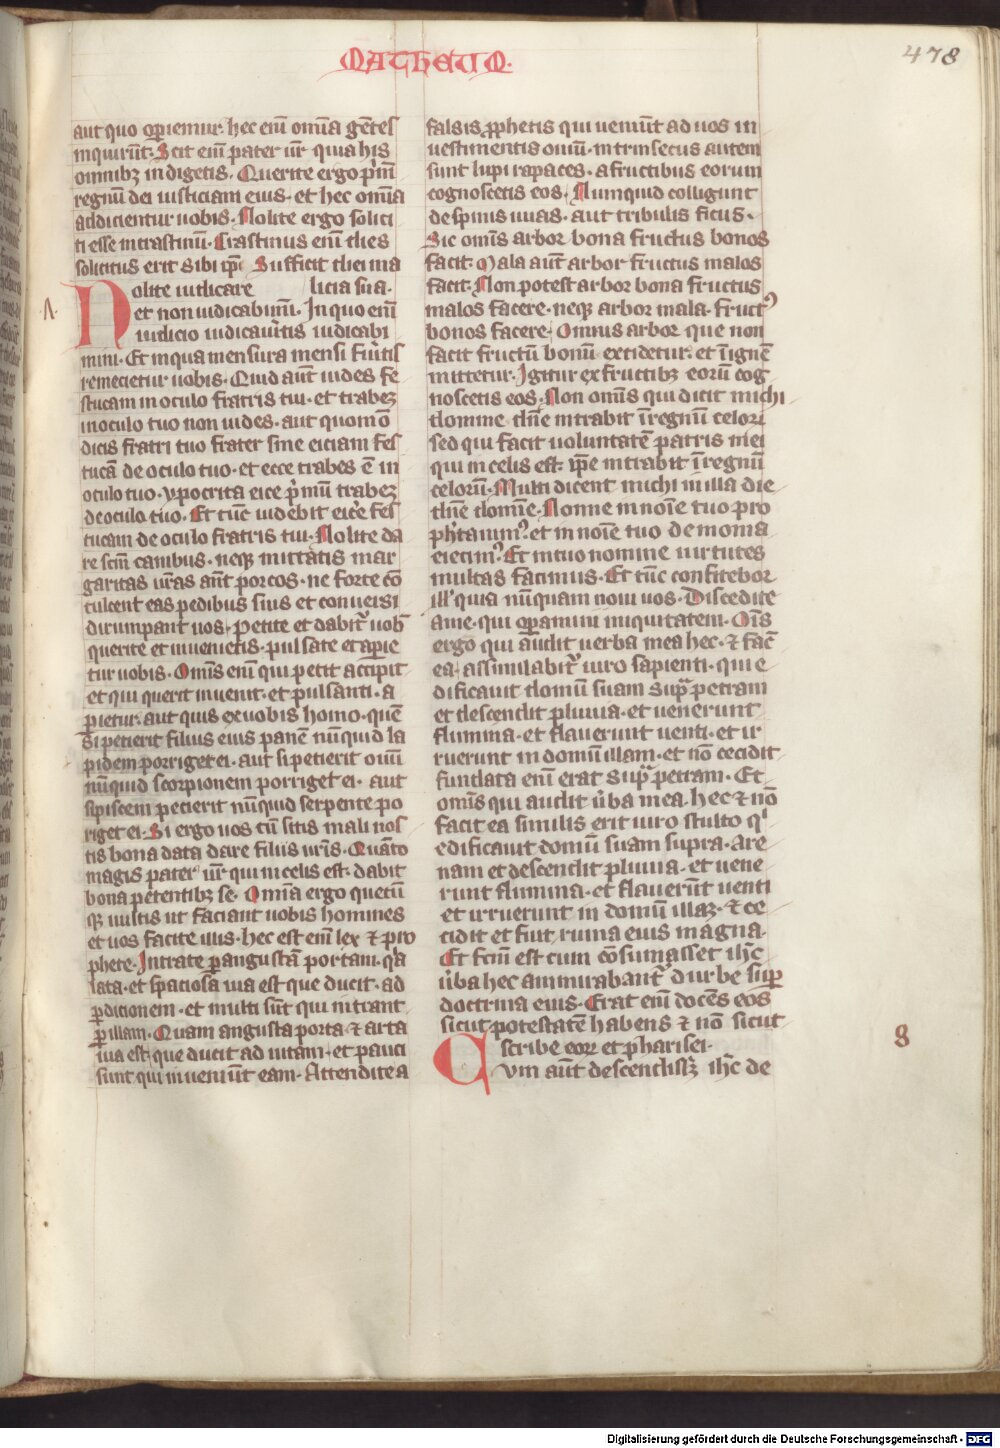 MATHEUM.
478
aut quo operiemur. hec enī omīa gētes
inquirūt. Scit enī pater ur̄ quia his
omnibꝫ indigetis. Querite ergo p̄mū
regnū dei iusticiam eius. et hec omīa
addicientur uobis. Nolite ergo solici
ti esse in crastinū. Crastinus enī dies
solicitus erit sibi ip̄i. Sufficit diei ma
licia sua.
Nolite iudicare
et non iudicabimī. In quo enī
iudicio iudicauītis iudicabi
mini. Et in qua mensura mensi fūitis
remecietur uobis. Quid aūt uides fe
stucam in oculo fratris tui. et trabeꝫ
in oculo tuo non uides. aut quomō
dicis fratri tuo frater sine eiciam fes
tucā de oculo tuo. et ecce trabes ē in
oculo tuo. ypocrita eice p̄mū trabeꝫ
de oculo tuo. Et tūc uidebit eic̄e fes
tucam de oculo fratris tui. Nolite da
re scm̄ canibus. neqꝫ mittatis mar
garitas ur̄as ant̄ porcos. ne forte cō
culcent eas pedibus suis et conuersi
dirumpant uos. Petite et dabit̄ uob̄
querite et inuenietis. pulsate et apie
tur uobis. Omīs enī qui petit accipit
et qui querit inuenit. et pulsanti. a
pietur. aut quis ex uobis homo. quē
si petierit filius eius panē nūquid la
pidem porriget ei. aut si petierit ouū
nūquid scorpionem porriget ei. aut
si piscem pecierit nūquid serpente po
riget ei. Si ergo uos cū sitis mali nos
tis bona data dare filiis ur̄is. Quāto
magis pater ur̄ qui in celis est. dabit
bona petentibꝫ se. Omīa ergo quecū
qꝫ uultis ut faciant uobis homines
et uos facite illis. hec est enī lex ⁊ pro
phete. Intrate p̱ angustā portam. q̄a
lata. et spaciosa uia est que ducit. ad
p̱dicionem. et multi sūt qui intrant
p̱ illam. Quam angusta porta ⁊ arta
uia est. que ducit ad uitam. et pauci
sunt qui inueniūt eam. Attendite a
falsis p̱phetis qui ueniūt ad uos in
uestimentis ouiū. intrinsecus autem
sunt lupi rapaces. a fructibus eorum
cognoscetis eos. Numquid colligunt
de spinis uuas. aut tribulis ficus.
Sic omīs arbor bona fructus bonos
facit. Mala aūt arbor fructus malos
facit. Non potest arbor bona fructus
malos facere. neqꝫ arbor mala. fructꝰ
bonos facere. Omnis arbor que non
facit fructū bonū. excidetur. et ī ignē
mittetur. Igitur ex fructibꝫ eorū cog
noscetis eos. Non omīs qui dicit michi
domine dn̄e intrabit ī regnū celorꝝ
sed qui facit uoluntatē patris mei
qui in celis est. ip̄e intrabit ī regnū
celorū. Multi dicent michi in illa die
dn̄e domīe. Nonne in noīe tuo pro
ph̄tauimꝰ. et in noīe tuo demonia
eiecimꝰ. Et in tuo nomine uirtutes
multas facimus. Et tūc confitebor
ill' quia nūquam noui uos. Discedite
a me. qui opamini iniquitatem. Oīs
ergo qui audit uerba mea hec. ⁊ fac̄
ea. assimulabit̄ uiro sapienti. qui e
dificauit domū suam sup̄ petram
et descendit pluuia. et uenerunt
flumina. et flauerunt uenti. et ir
ruerunt in domū illam. et nō cecidit
fundata enī erat sup̄ petram. Et
omīs qui audit ūba mea hec ⁊ nō
facit ea similis erit uiro stulto qⁱ
edificauit domū suam supra. are
nam et descendit pluuia. et uene
runt flumina. et flauerūt uenti
et irruerunt in domū illaꝫ. ⁊ ce
cidit et fuit ruina eius magna.
Et fcm̄ est cum cōsumasset ihc̄
ūba hec ammirabant̄ durbe sup
doctrina eius. Erat enī docēs eos
sicut potestatē habens ⁊ nō sicut
scribe eorꝝ et pharisei.
Cum aūt descendissꝫ ihc̄ de
8
Digitalisierung gefördert durch die Deutsche Forschungsgemeinschaft - DFG